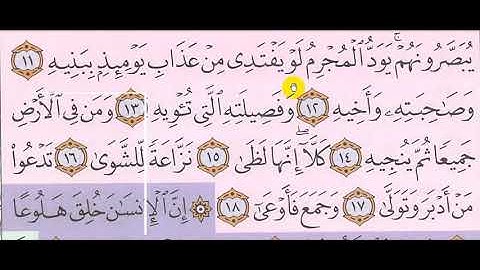 يُبَصَّرُونَهُمْ ۚ يَوَدُّ الْمُجْرِمُ لَوْ يَفْتَدِي مِنْ عَذَابِ يَوْمِئِذٍ بِبَنِيهِ ١١
وَصَاحِبَتِهِ وَأَخِيهِ ١٢ وَفَصِيلَتِهِ الَّتِي تُـْٔوِيهِ ١٣ وَمَن فِي الْأَرْضِ
جَمِيعًا ثُمَّ يُنجِيهِ ١٤ كَلَّا ۖ إِنَّهَا لَظَىٰ ١٥ نَزَّاعَةً لِّلشَّوَىٰ ١٦ تَدْعُوا۟
مَنْ أَدْبَرَ وَتَوَلَّىٰ ١٧ وَجَمَعَ فَأَوْعَىٰ ١٨ ۞ إِنَّ الْإِنسَانَ خُلِقَ هَلُوعًا